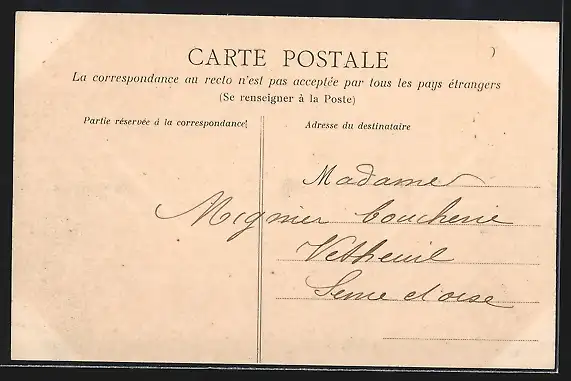 CARTE POSTALE
La correspondance au recto n'est pas acceptée par tous les pays étrangers
(Se renseigner à la Poste)
Partie réservée à la correspondance
Adresse du destinataire
Madame
Mignier boucherie
Vetheuil
Seine et oise